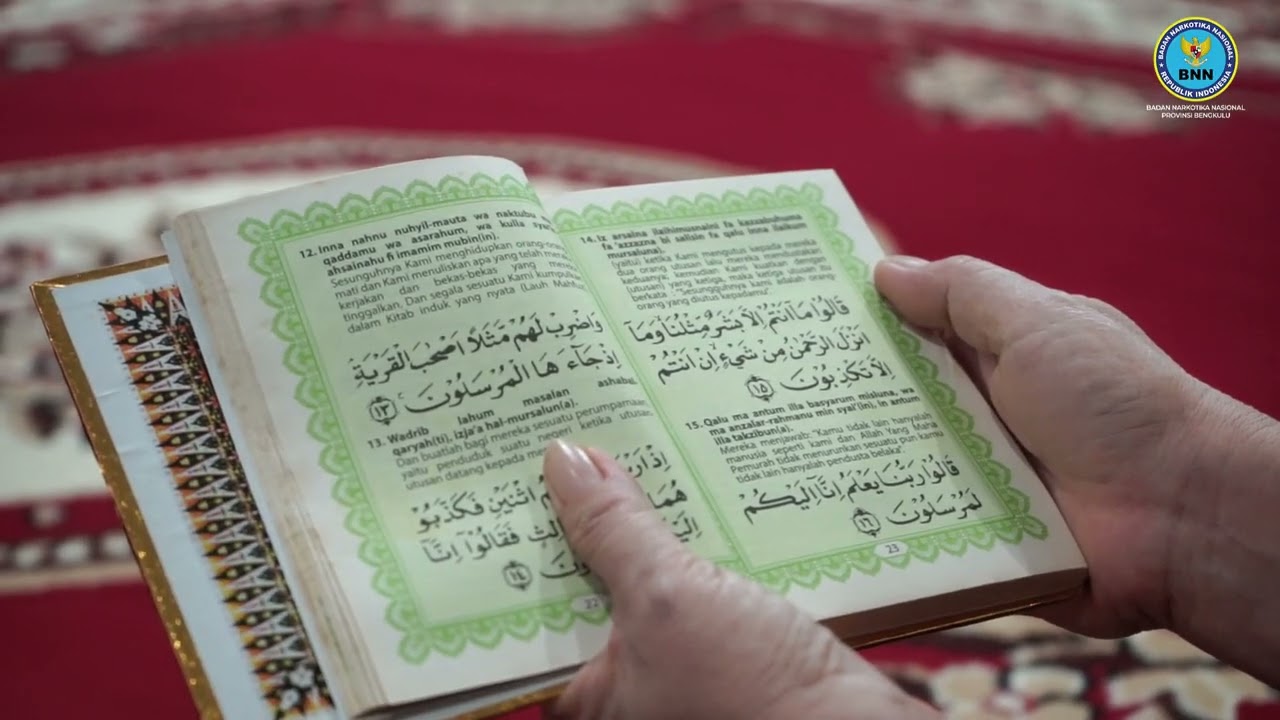 12. Inna nahnu nuhyil-mauta wa naktubu
qaddamu wa asarahum, wa kulla
ahsainahu fi imamim mubin(in).
Sesungguhnya Kami menghidupkan orang-orang
mati dan Kami menuliskan apa yang telah mereka
kerjakan dan bekas-bekas yang mereka
tinggalkan. Dan segala sesuatu Kami kumpulkan
dalam Kitab induk yang nyata (Lauh Mahfuz
وَاضْرِبْ لَهُمْ مَّثَلًا اَصْحٰبَ الْقَرْيَةِ
اِذْ جَاۤءَ هَا الْمُرْسَلُوْنَ ١٣
13. Wadrib lahum masalan ashabal
qaryah(ti), izja'a hal-mursalun(a).
Dan buatlah bagi mereka sesuatu perumpamaan,
yaitu penduduk suatu negeri ketika utusan
utusan datang kepada
اثْنَيْنِ فَكَذَّبُوْ
فَقَالُوْٓا اِنَّآ
١٤
22
14. Iz arsalna ilaihimusnaini fa kazzabuhuma
fa 'azzazna bi salisin fa qalu inna ilaikum
mursaluna).
(yaitu) ketika Kami mengutus kepada mereka
dua orang utusan, lalu mereka mendustakan
keduanya; kemudian Kami kuatkan dengan
(utusan) yang ketiga, maka ketiga utusan itu
berkata : "Sesungguhnya kami adalah orang
orang yang diutus kepadamu".
قَالُوْا مَآ اَنْتُمْ اِلَّا بَشَرٌ مِّثْلُنَا وَمَآ
اَنْزَلَ الرَّحْمٰنُ مِنْ شَيْءٍ اِنْ اَنْتُمْ
اِلَّا تَكْذِبُوْنَ ١٥
15. Qalu ma antum illa basyarum misluna, wa
ma anzalar-rahmanu min syai'(in), in antum
illa takzibun(a).
Mereka menjawab: "Kamu tidak lain hanyalah
manusia seperti kami dan Allah Yang Maha
Pemurah tidak menurunkan sesuatu pun kamu
tidak lain hanyalah pendusta belaka".
قَالُوْا رَبُّنَا يَعْلَمُ اِنَّآ اِلَيْكُمْ
لَمُرْسَلُوْنَ ١٦
23
BADAN NARKOTIKA NASIONAL
BNN
REPUBLIK INDONESIA
BADAN NARKOTIKA NASIONAL
PROVINSI BENGKULU